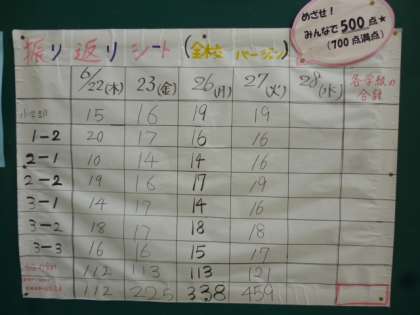 めざせ!
みんなで500点★
(700点満点)
振り返りシート(全校バージョン)
6/22(木) 23(金) 26(月) 27(火) 28(水) 各学級の合計
15 16 19 19
1-2 20 17 16 16
2-1 10 14 14 16
2-2 19 16 17 19
3-1 14 17 14 16
3-2 18 17 18 18
3-3 16 16 15 17
112 113 113 121
112 225 338 459